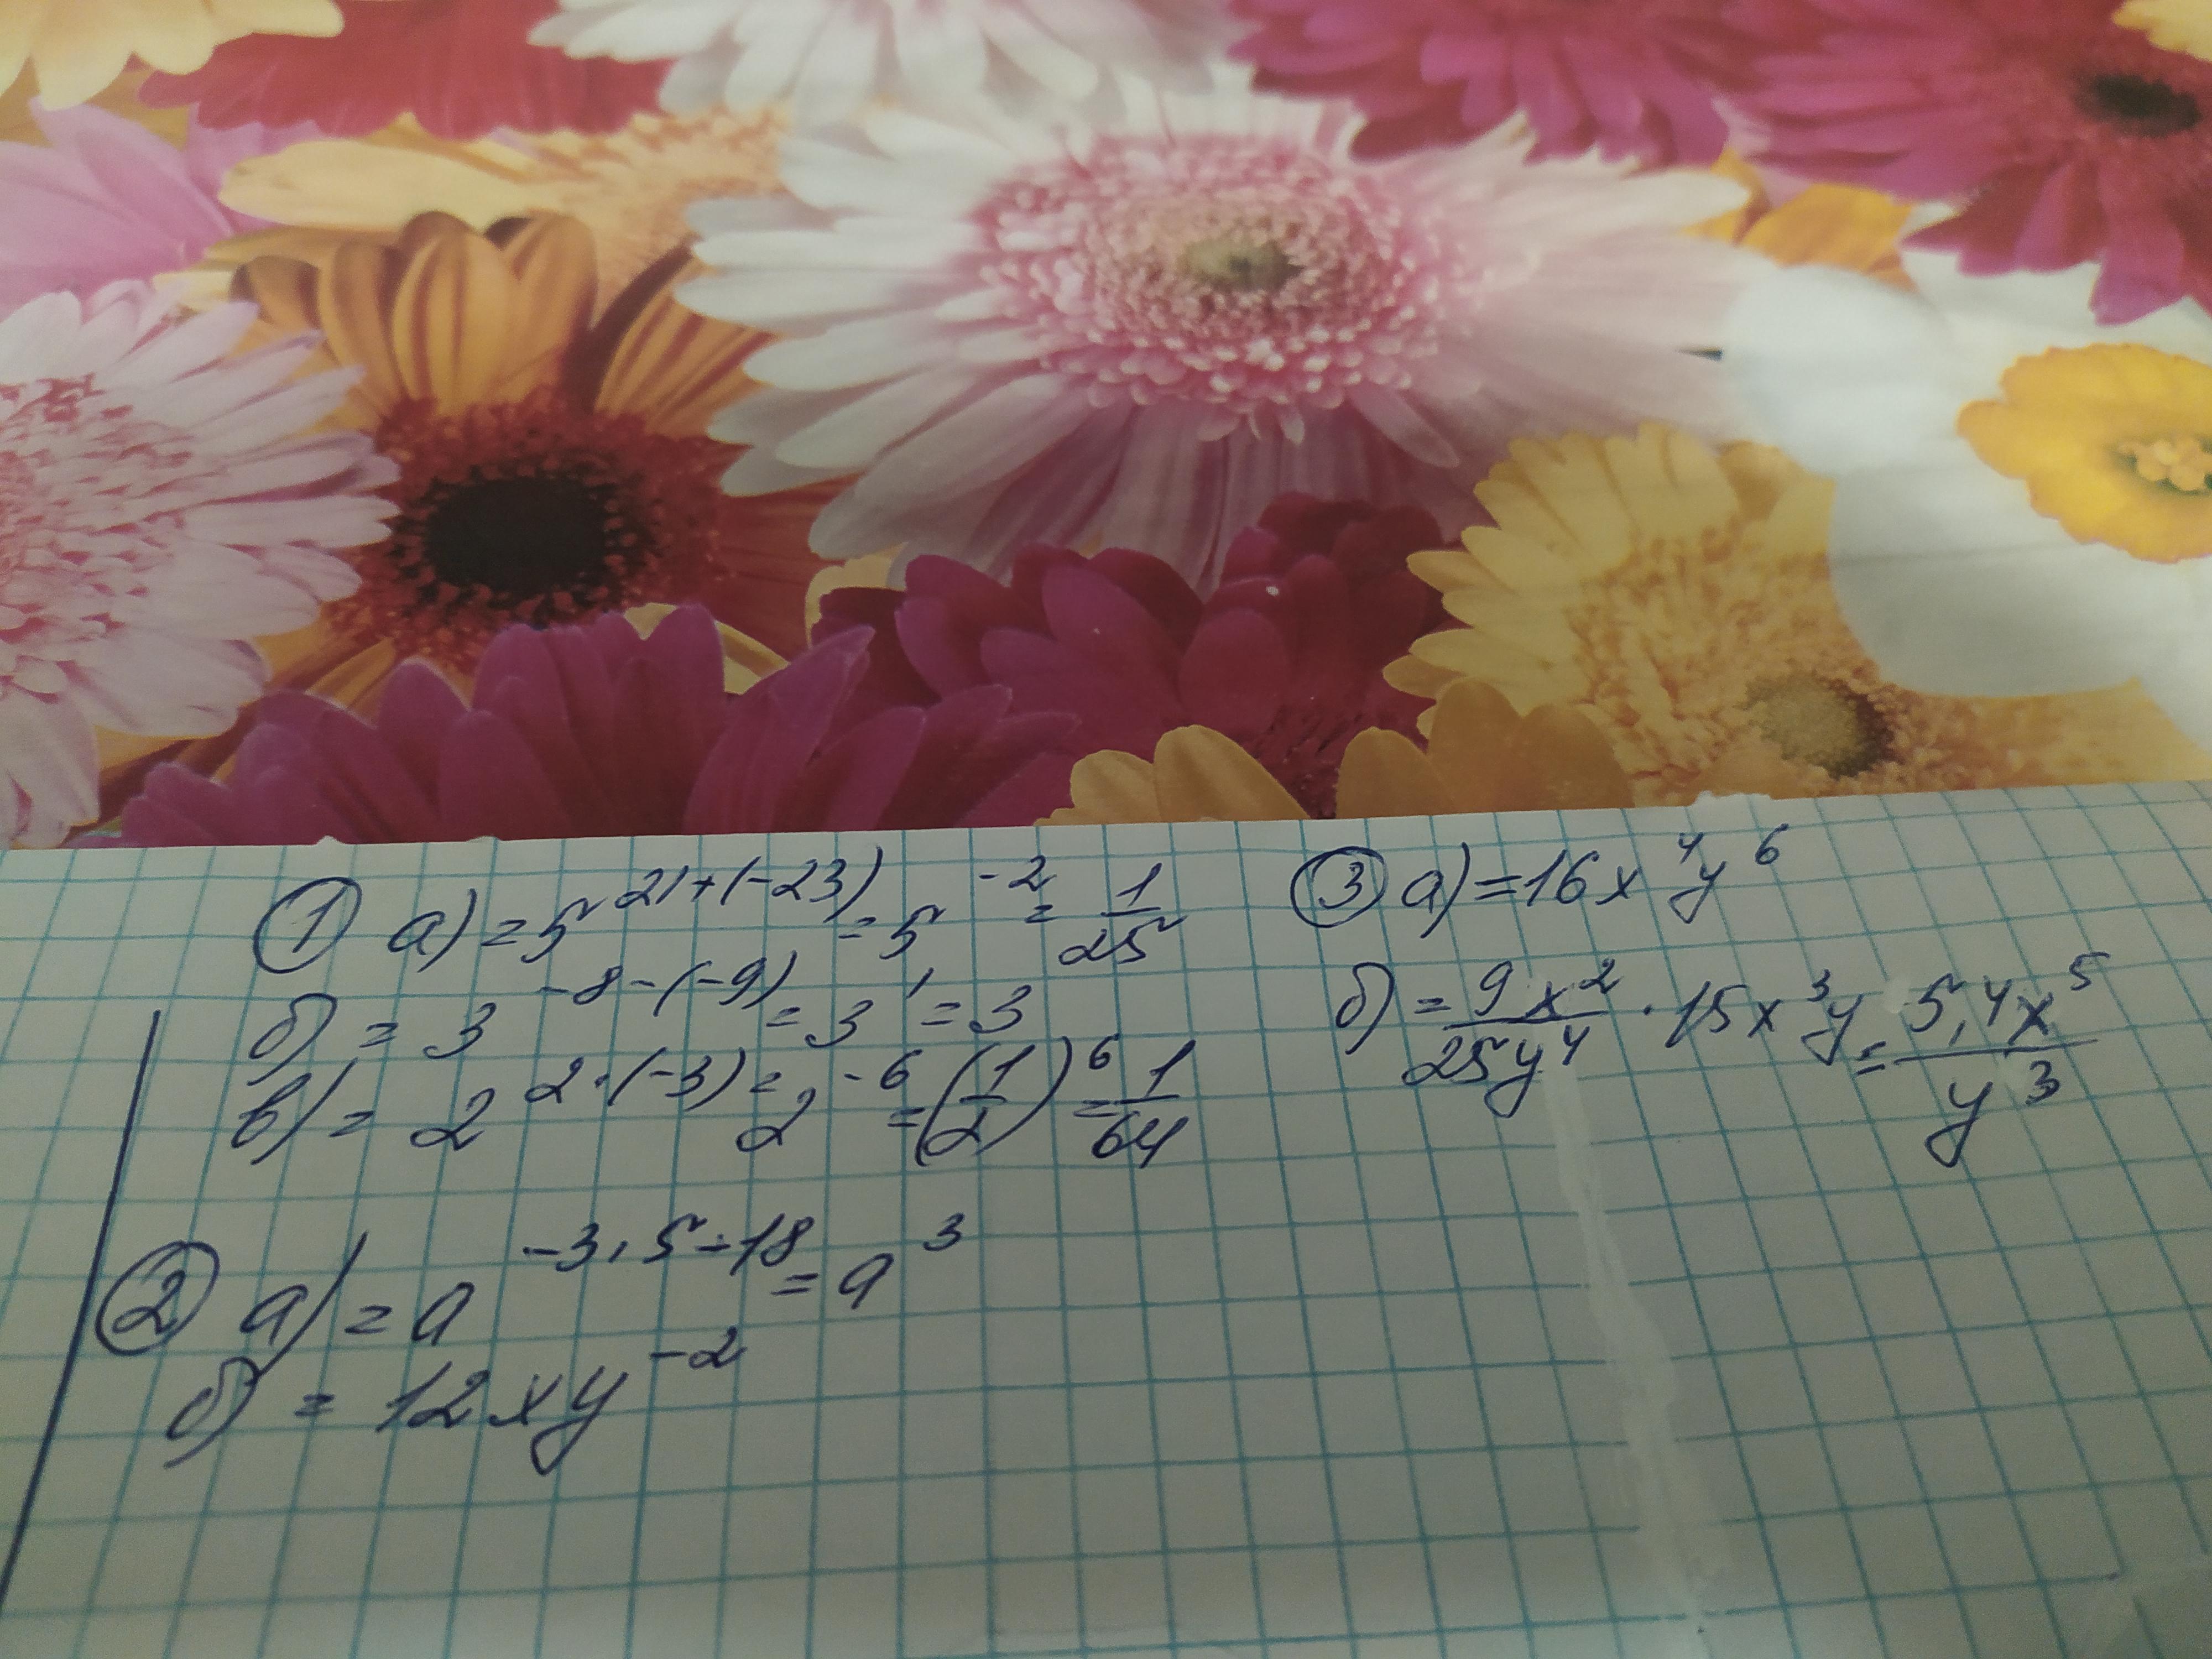 ① а) = 5^{21+(-23)} = 5^{-2} = \frac{1}{25}
б) = 3^{-8-(-9)} = 3^1 = 3
в) = 2^{2·(-3)} = 2^{-6} = (\frac{1}{2})^6 = \frac{1}{64}
② а) = a^{-3·5-18} = a^3
б) = 12xy^{-2}
③ а) = 16x^4y^6
б) = \frac{9x^2}{25y^4} · 15x^3y = \frac{5,4x^5}{y^3}